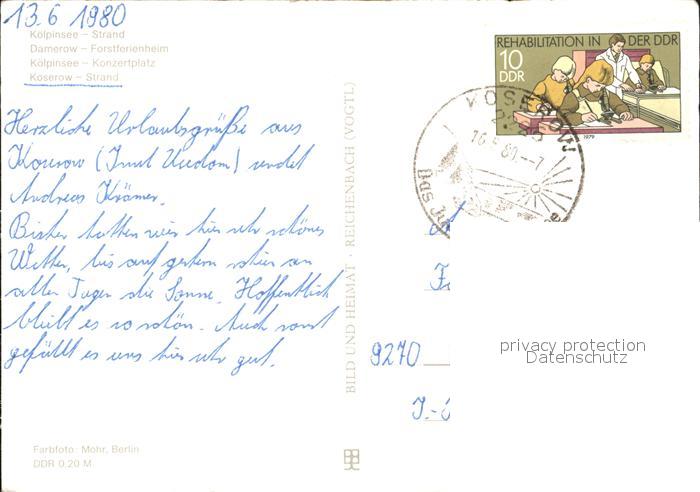 13.6 1980
Kölpinsee – Strand
Damerow – Forstferienheim
Kölpinsee – Konzertplatz
Koserow – Strand
Herzliche Urlaubsgrüße aus
Koserow (Insel Usedom) sendet
Andreas Krämer.
Bisher hatten wir hier sehr schönes
Wetter, bis auf gestern schien an
allen Tagen die Sonne. Hoffentlich
bleibt es so schön. Auch sonst
gefällt es uns hier sehr gut.
Farbfoto: Mohr, Berlin
DDR 0,20 M
BILD UND HEIMAT · REICHENBACH (VOGTL)
REHABILITATION IN DER DDR
10
DDR
1979
KOSEROW
Das
9270
privacy protection
Datenschutz